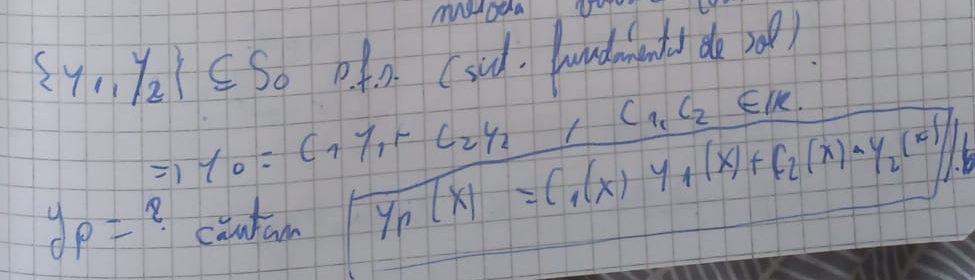 metoda
{y1, y2} ⊆ S0 s.f.s. (sist. fundamental de sol)
=> y0 = C1 y1 + C2 y2 , C1, C2 ∈ ℝ.
yp = ? căutăm yp(x) = C1(x) y1(x) + C2(x) · y2(x)